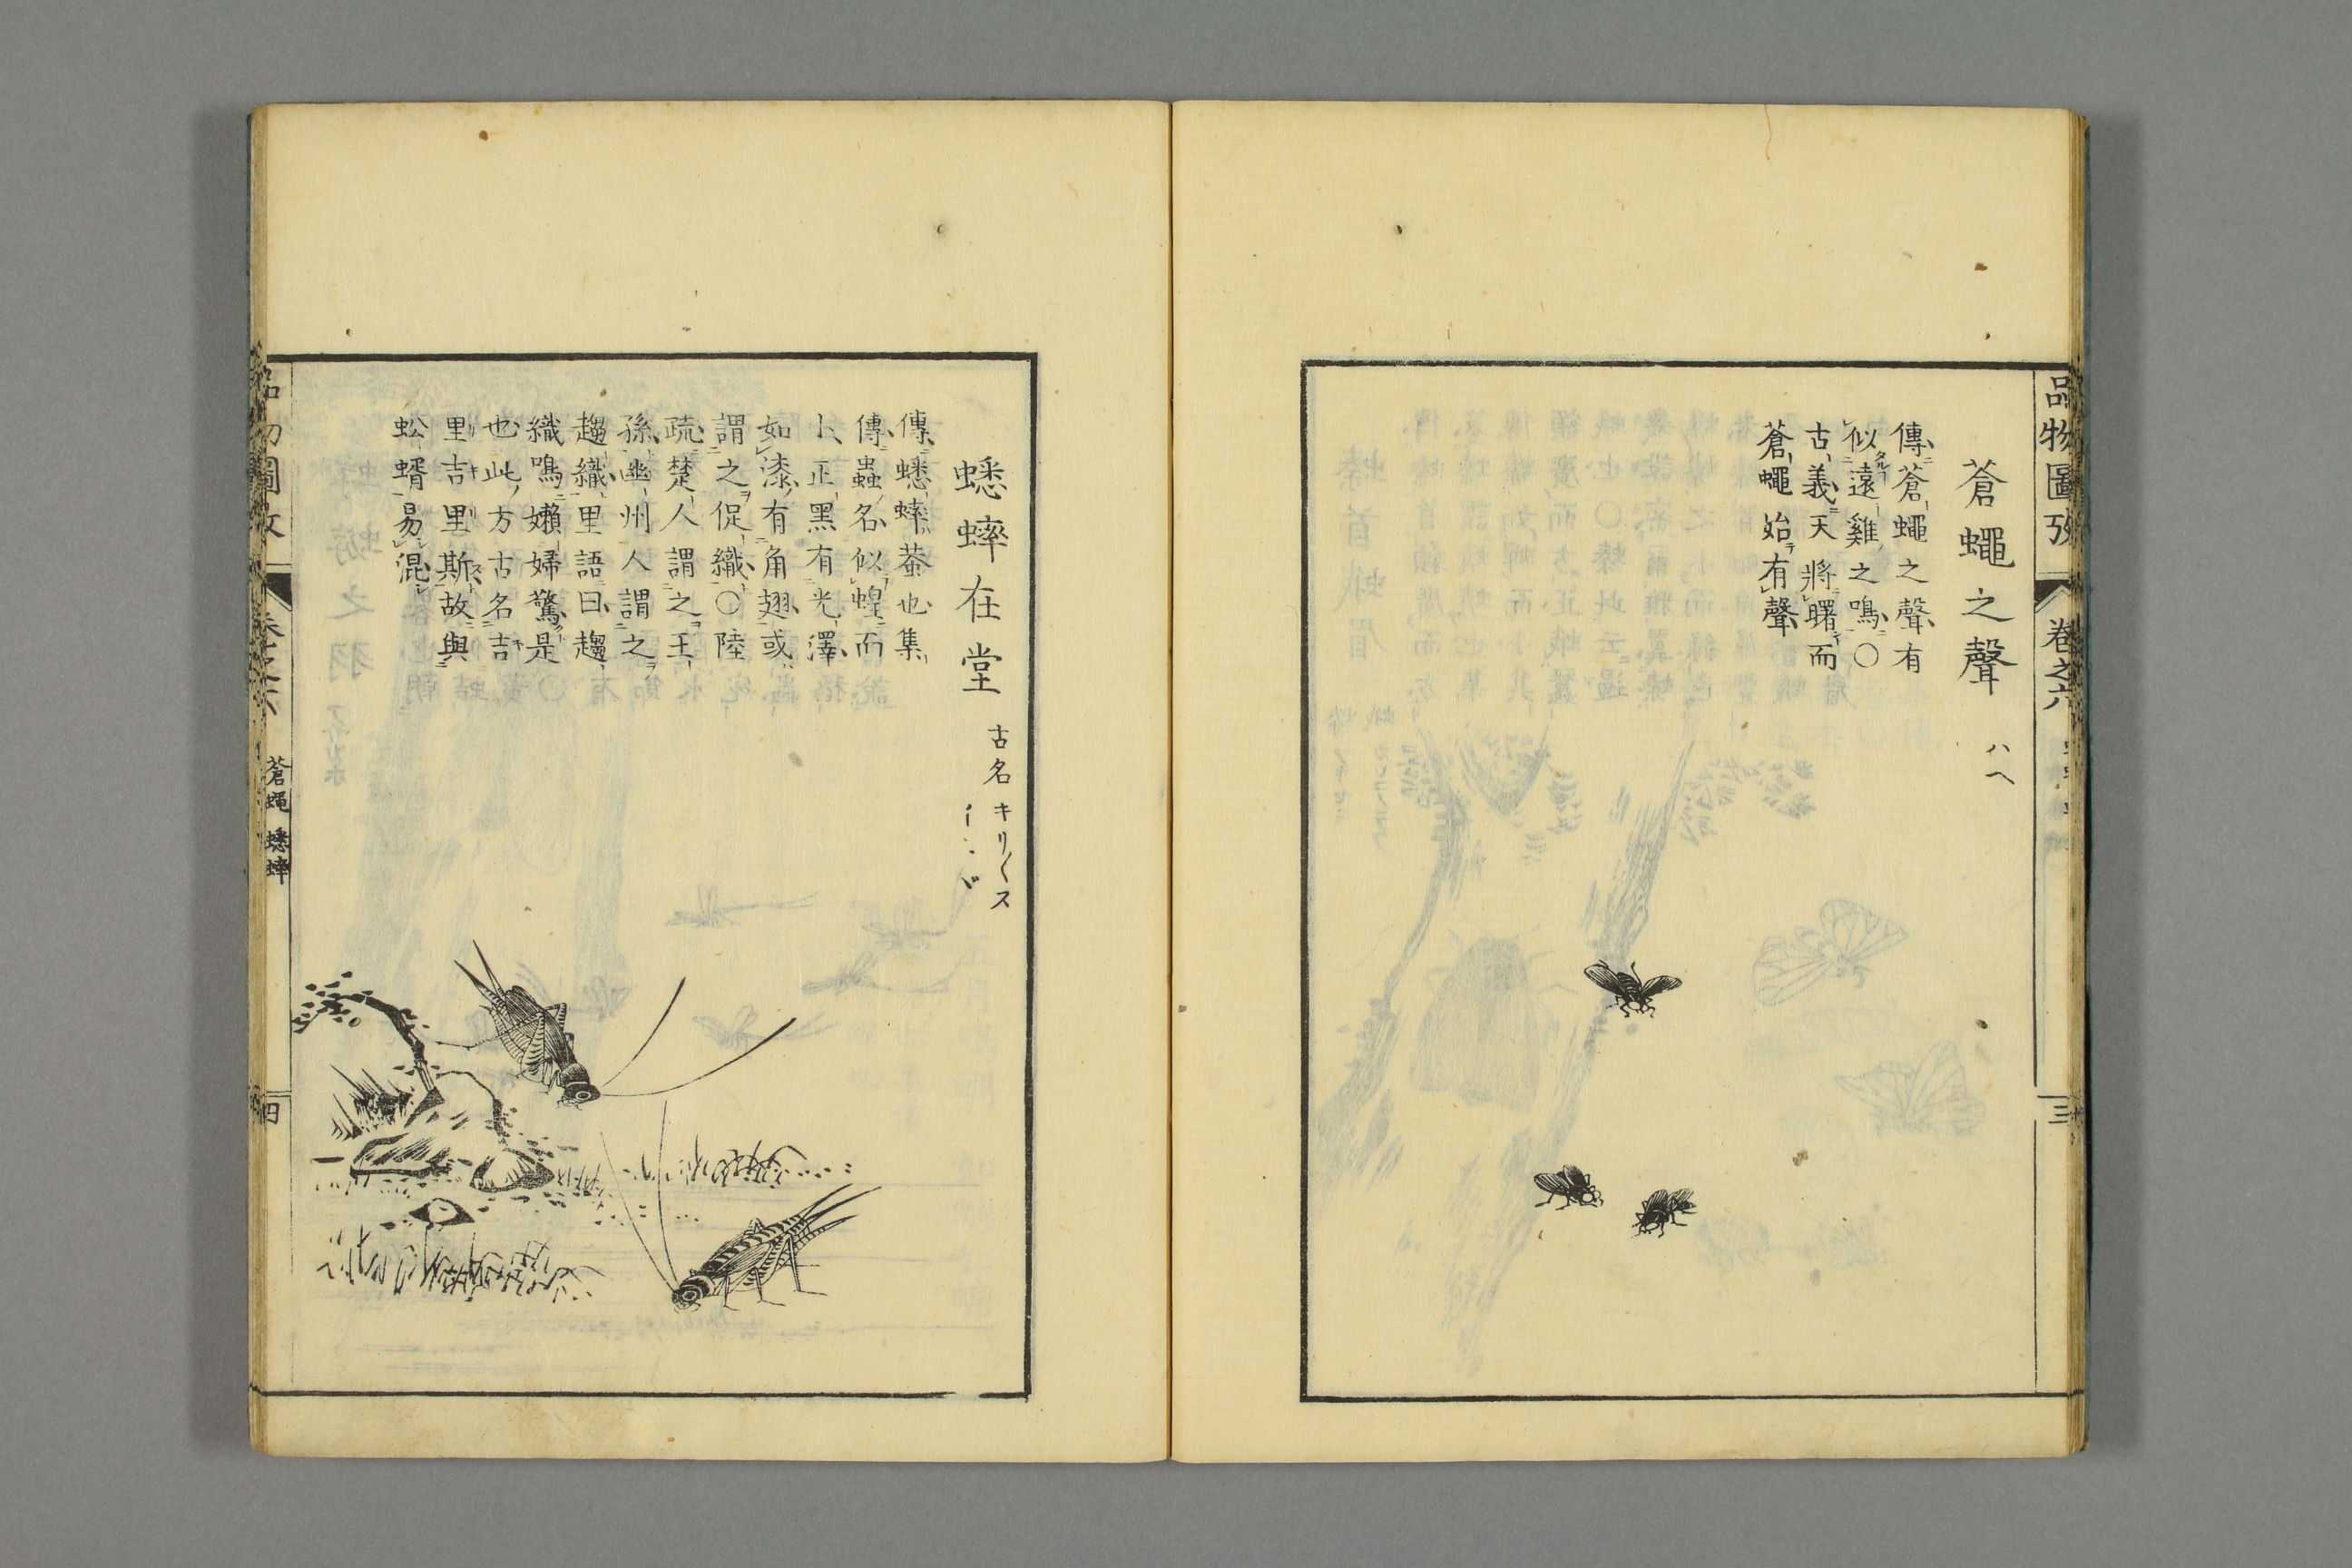 品物圖攷
卷之六
三
蒼蠅之聲
ハヘ
傳蒼蠅之聲有
似遠雞之鳴〇
古義天將曙而
蒼蠅始有聲
蟋蟀在堂
古名キリ〱ス
傳蟋蟀蛬也集
傳蟲名似蝗而
小正黑有光澤
如漆有角翅或
謂之促織〇陸
疏楚人謂之王
孫幽州人謂之
趨織里語曰趨
織鳴嬾婦驚是
也此方古名吉
里吉里斯故與
蚣蝑易混
品物圖攷
卷之六
蒼蠅 蟋蟀
四